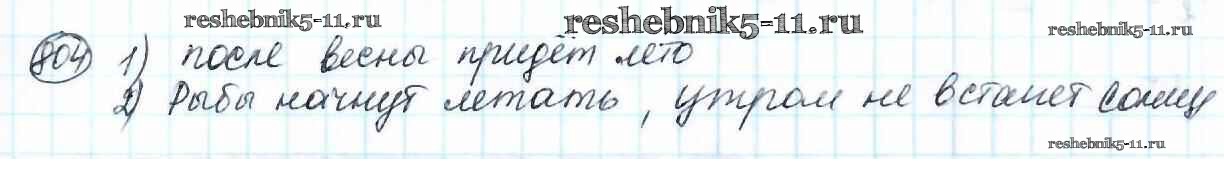 reshebnik5-11.ru
reshebnik5-11.ru
reshebnik5-11.ru
804 1) после весны придёт лето
2) Рыбы начнут летать, утром не встанет солнц
reshebnik5-11.ru